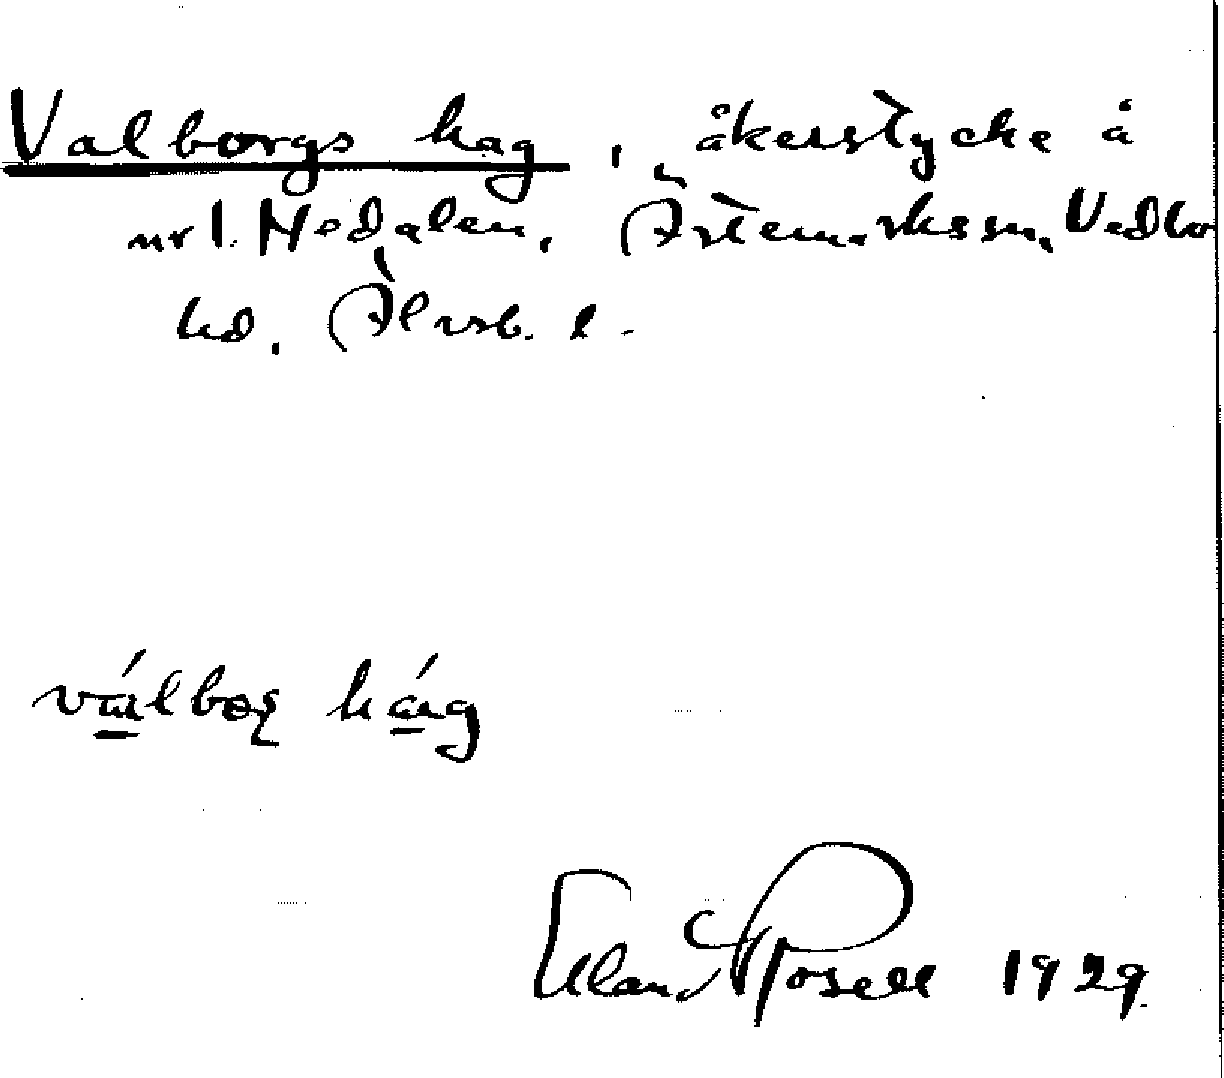 Valborgs hag, åkerstycke å
nr 1. Nedalen, Ärtemarks sn, Vedbo
hd. Älvsb. l.
válboș hág
Erland Rosell 1929.